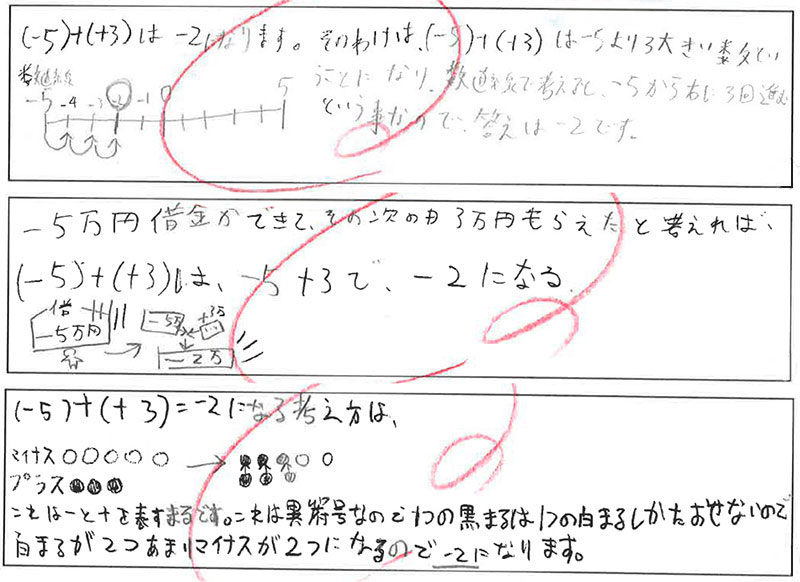 (-5)+(+3)は -2になります。そのわけは、(-5)+(+3)は-5より3大きい数とい
うことになり、数直線で考えると、-5から右に3回進む
という事なので、答えは-2です。
数直線
-5 -4 -3 -2 -1 0 5
-5万円借金ができて、その次の月3万円もらえたと考えれば、
(-5)+(+3)は、-5+3で、-2になる。
借
-5万円
-5万 +3万
-2万
(-5)+(+3)=-2になる考え方は、
マイナス○○○○○
プラス●●●
これは-と+を表すまるです。これは異符号なので1つの黒まるは1つの白まるしかたおせないので
白まるが2つあまりマイナスが2つになるので-2になります。